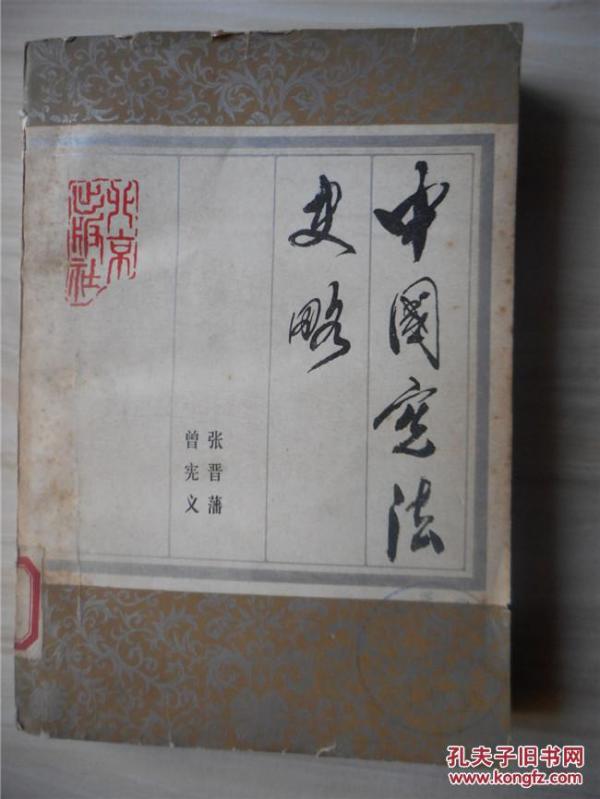 中國宪法
史略
张晋藩
曾宪义
北京
出版社
孔夫子旧书网
www.kongfz.com